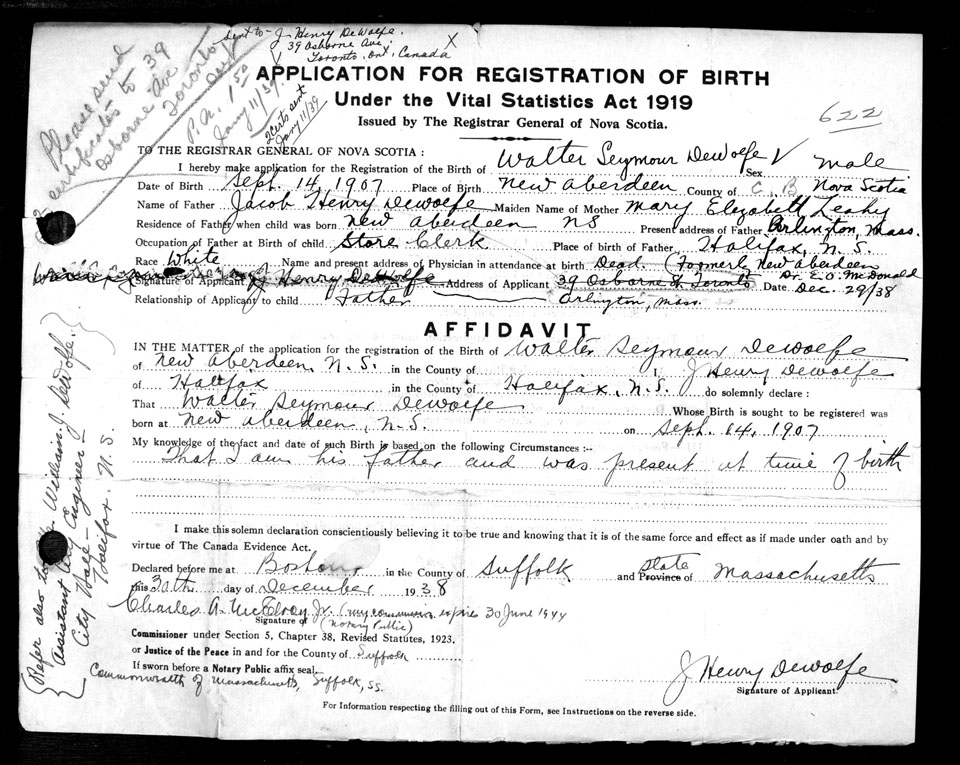 Please send
2 certificates to 39
Osborne Ave
Toronto
Ont
Sent to- J. Henry DeWolfe X
39 Osborne Ave;
Toronto, Ont, Canada
P.N. 1 50
Jany 11/39.
2 certs sent
Jany 11/39
APPLICATION FOR REGISTRATION OF BIRTH
Under the Vital Statistics Act 1919
Issued by The Registrar General of Nova Scotia.
622
TO THE REGISTRAR GENERAL OF NOVA SCOTIA :
I hereby make application for the Registration of the Birth of Walter Seymour DeWolfe √ Sex male
Date of Birth Sept. 14, 1907 Place of Birth New Aberdeen County of C. B Nova Scotia
Name of Father Jacob Henry Dewolfe Maiden Name of Mother Mary Elizabeth Leahy
Residence of Father when child was born New Aberdeen NS Present address of Father Arlington, Mass.
Occupation of Father at Birth of child Store Clerk Place of birth of Father Halifax, N. S.
Race White Name and present address of Physician in attendance at birth Dead (Formerly New Aberdeen
Dr. E.O. McDonald
Signature of Applicant J Henry DeWolfe Address of Applicant 39 Osborne St Toronto Date Dec. 29/38
Relationship of Applicant to child Father Arlington, Mass.
AFFIDAVIT
IN THE MATTER of the application for the registration of the Birth of Walter Seymour Dewolfe
of New Aberdeen, N. S. in the County of I, J Henry Dewolfe
of Halifax in the County of Halifax, N. S. do solemnly declare :
That Walter Seymour Dewolfe Whose Birth is sought to be registered was
born at New Aberdeen, N.S. on Sept. 14, 1907
My knowledge of the fact and date of such Birth is based on the following Circumstances :--
That I am his father and was present at time of birth
I make this solemn declaration conscientiously believing it to be true and knowing that it is of the same force and effect as if made under oath and by
virtue of The Canada Evidence Act.
Declared before me at Boston in the County of Suffolk and Province of State Massachusetts
this 30th day of December 1938
Charles A. McElroy Jr. (my commission expires 30 June 1944
Signature of (Notary Public)
Commissioner under Section 5, Chapter 38, Revised Statutes, 1923,
or Justice of the Peace in and for the County of Suffolk
If sworn before a Notary Public affix seal.
Commonwealth of Massachusetts, Suffolk, SS.
J Henry Dewolfe
Signature of Applicant.
For Information respecting the filling out of this Form, see Instructions on the reverse side.
{Refer also to William J. Dewolfe.}
Assistant City Engineer
City Hall-
Halifax. N. S.